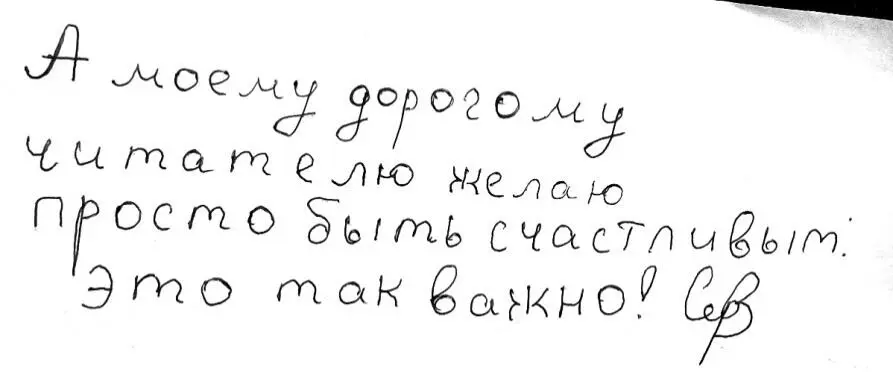 А моему дорогому
читателю желаю
просто быть счастливым:
это так важно!